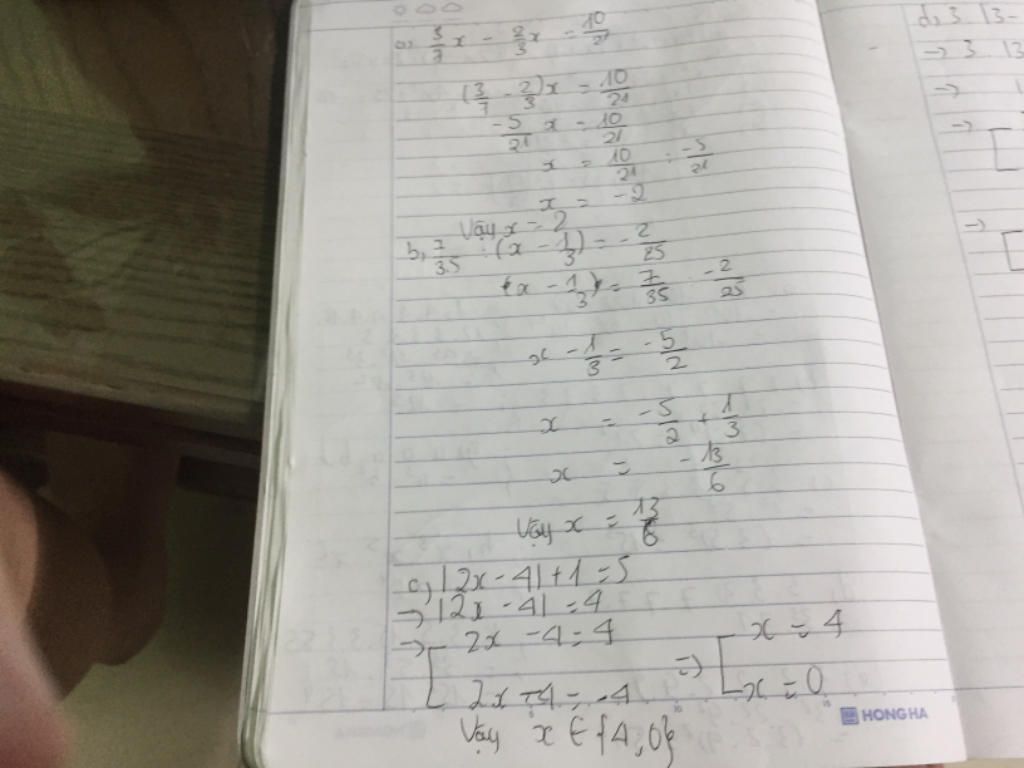 a, 3/7 x - 2/3 x = 10/21
(3/7 - 2/3)x = 10/21
-5/21 x = 10/21
x = 10/21 : -5/21
x = -2
Vậy x = 2
b, 7/35 : (x - 1/3) = -2/25
(x - 1/3) = 7/35 : -2/25
x - 1/3 = -5/2
x = -5/2 + 1/3
x = -13/6
Vậy x = 13/6
c, |2x - 4| + 1 = 5
→ |2x - 4| = 4
→ [ 2x - 4 = 4 ⇒ [ x = 4
2x - 4 = -4 x = 0
Vậy x ∈ {4, 0}
HONG HA
d, 3 |3-
→ 3 |3
→
→ [
→ [